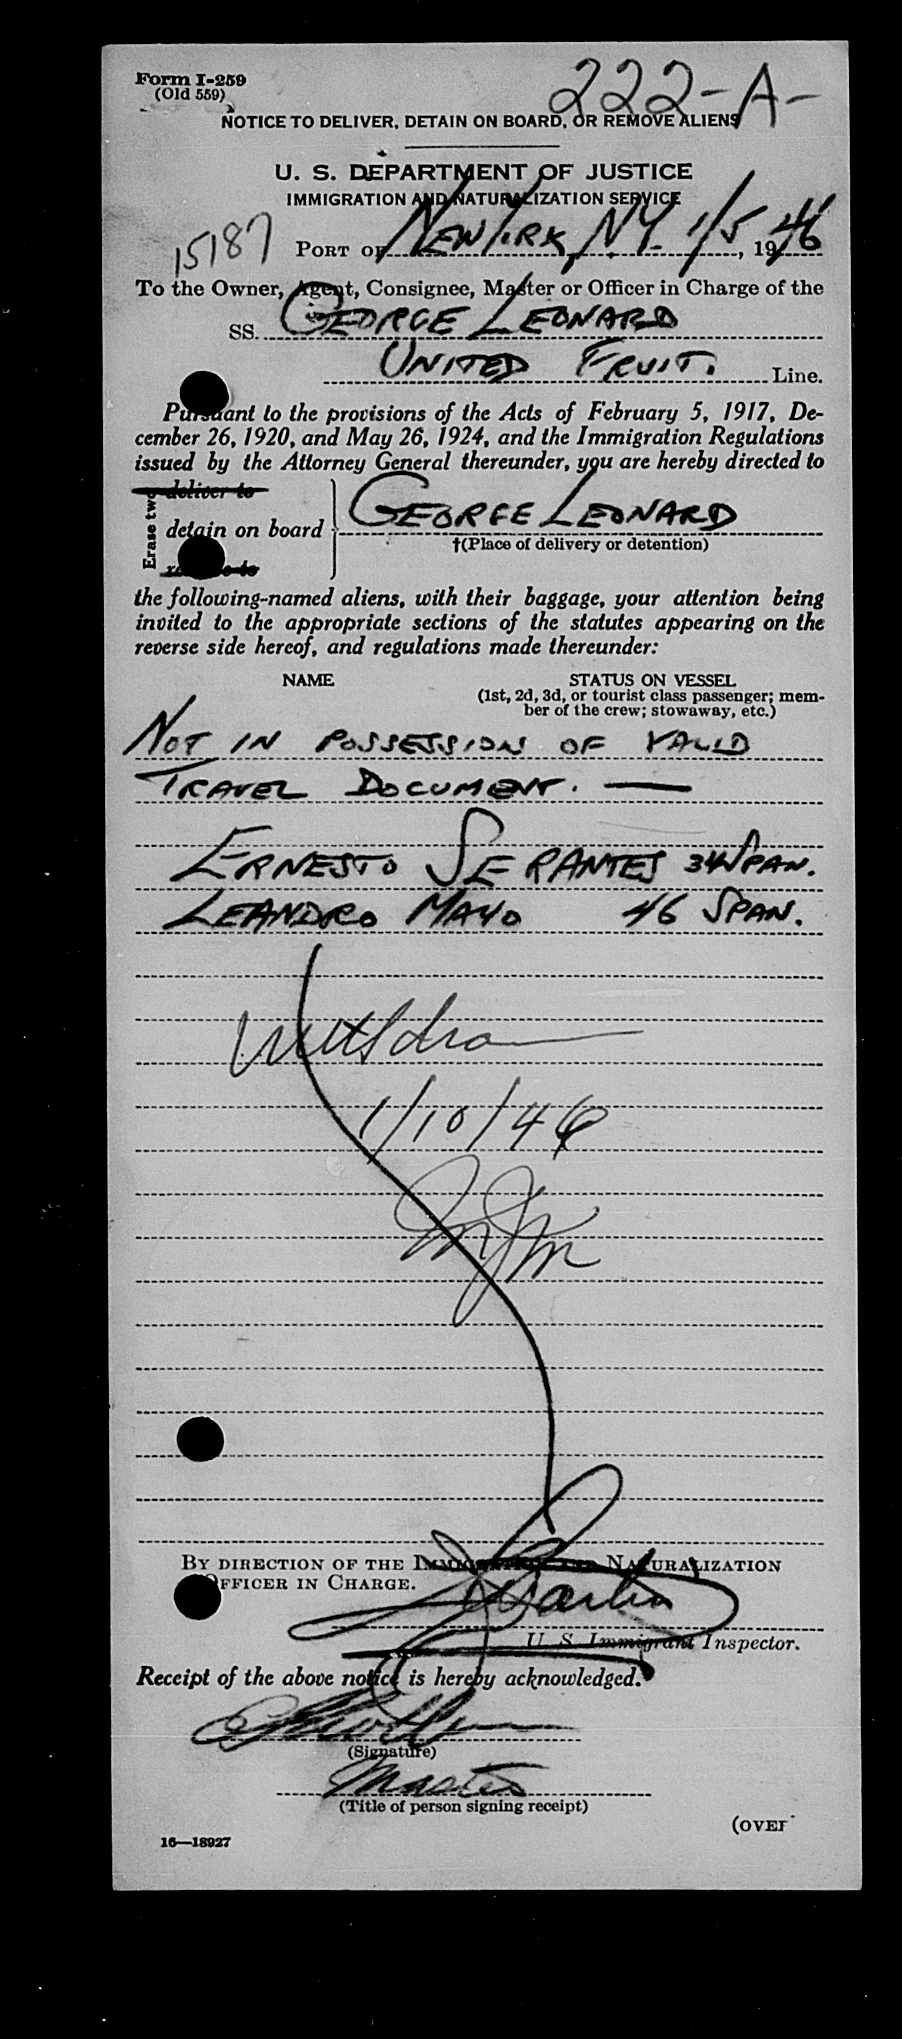 Form I-259
(Old 559)
222-A-
NOTICE TO DELIVER, DETAIN ON BOARD, OR REMOVE ALIENS
U. S. DEPARTMENT OF JUSTICE
IMMIGRATION AND NATURALIZATION SERVICE
15187
PORT OF NEW YORK, N.Y. 1/5, 1946
To the Owner, Agent, Consignee, Master or Officer in Charge of the
SS. GEORGE LEONARD
UNITED FRUIT. Line.
Pursuant to the provisions of the Acts of February 5, 1917, De-
cember 26, 1920, and May 26, 1924, and the Immigration Regulations
issued by the Attorney General thereunder, you are hereby directed to
Erase two
deliver to
detain on board
GEORGE LEONARD
†(Place of delivery or detention)
the following-named aliens, with their baggage, your attention being
invited to the appropriate sections of the statutes appearing on the
reverse side hereof, and regulations made thereunder:
NAME STATUS ON VESSEL
(1st, 2d, 3d, or tourist class passenger; mem-
ber of the crew; stowaway, etc.)
NOT IN POSSESSION OF VALID
TRAVEL DOCUMENT. —
ERNESTO SERANTES 34 SPAN.
LEANDRO MAYO 46 SPAN.
1/10/46
BY DIRECTION OF THE IMMIGRATION AND NATURALIZATION
OFFICER IN CHARGE.
U. S. Immigrant Inspector.
Receipt of the above notice is hereby acknowledged.
(Signature)
Master
(Title of person signing receipt)
(OVER
16—18927